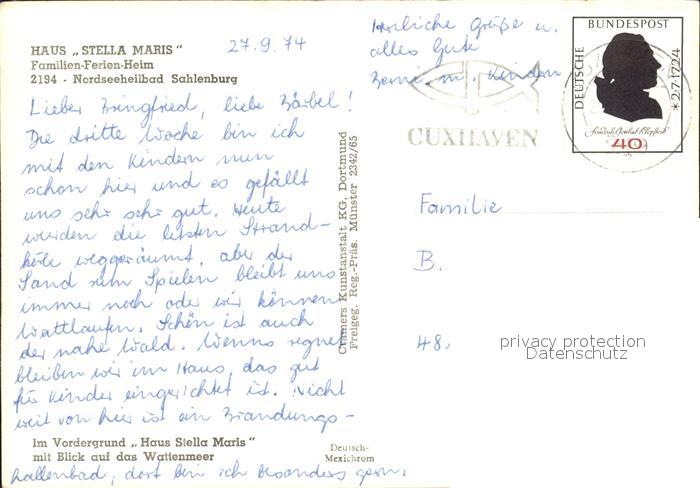 HAUS „STELLA MARIS"
Familien-Ferien-Heim
2194 - Nordseeheilbad Sahlenburg
27.9.74
Lieber Bringfried, liebe Bärbel!
Die dritte Woche bin ich
mit den Kindern nun
schon hier und es gefällt
uns sehr sehr gut. Heute
werden die letzten Strand-
körbe weggeräumt, aber der
Sand zum Spielen bleibt uns
immer noch oder wir können
Wattlaufen. Schön ist auch
der nahe Wald. Wenns regnet
bleiben wir im Haus, das gut
für Kinder eingerichtet ist. Nicht
weit von hier ist ein Brandungs-
hallenbad, dort bin ich besonders gern.
Herzliche Grüße u.
alles Gute
m. Kindern
Im Vordergrund „Haus Stella Maris"
mit Blick auf das Wattenmeer
Deutsch-
Mexichrom
Cramers Kunstanstalt KG, Dortmund
Freigeg. Reg.-Präs. Münster 2342/65
CUXHAVEN
DEUTSCHE BUNDESPOST
* 2·7·1724
Friedrich Gottlieb Klopstock
40
Familie
B.
48,
privacy protection
Datenschutz